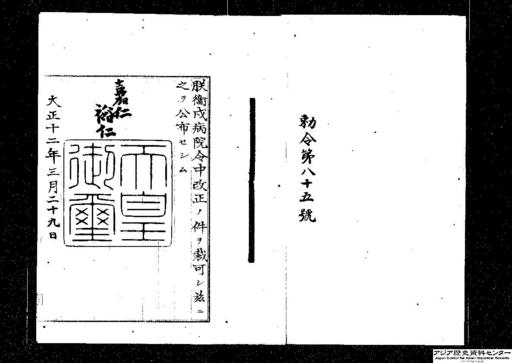 勅令第八十五號
朕衞戍病院令中改正ノ件ヲ裁可シ茲ニ
之ヲ公布セシム
嘉仁
裕仁
天皇
御璽
大正十二年三月二十九日
アジア歴史資料センター
Japan Center for Asian Historical Records